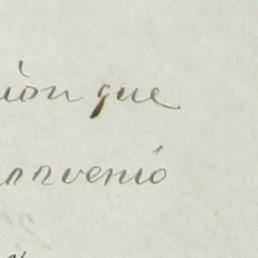 ion que
nvenio